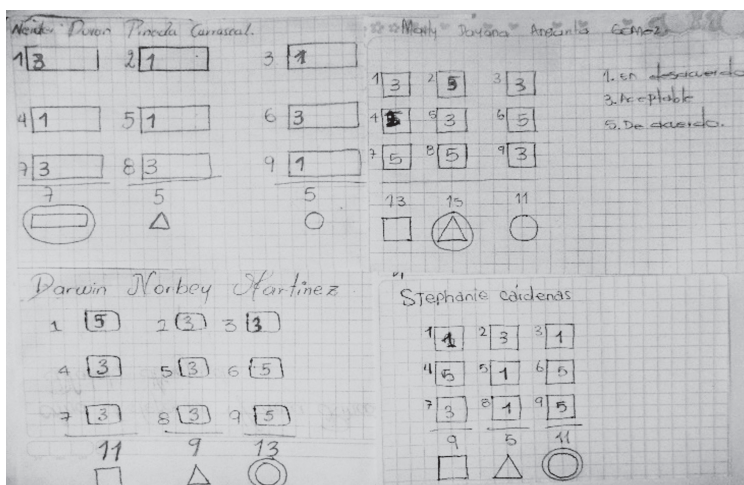 Duvan Pineda Carrascal.
1 3 2 1 3 1
4 1 5 1 6 3
7 3 8 3 9 1
7 5 5
Dayana Gómez
1 3 2 5 3 3
4 5 3 6 5
7 5 8 5 9 3
13 15 11
1. en desacuerdo
3. Aceptable
5. De acuerdo.
Darwin Norbey Martinez
1 5 2 3 3 3
4 3 5 3 6 5
7 3 8 3 9 5
11 9 13
Stephanie cárdenas
1 1 2 3 3 1
4 5 5 1 6 5
7 3 8 1 9 5
9 5 11